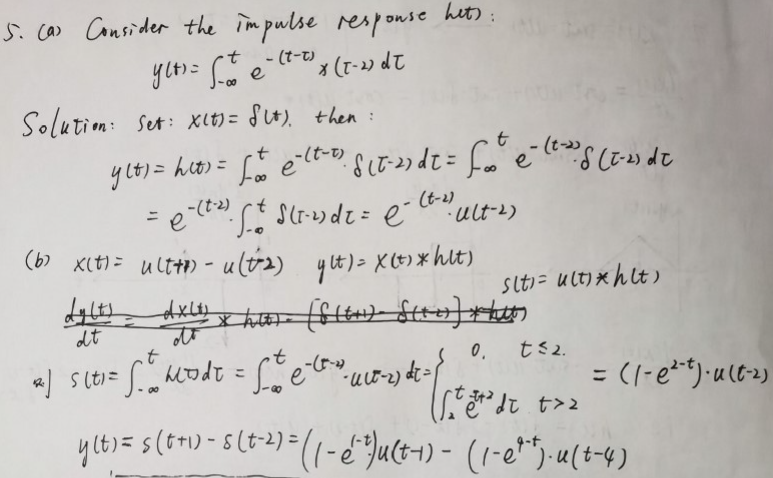 5. (a) Consider the impulse response h(t):
y(t) = ∫_{-∞}^{t} e^{-(t-τ)} x(τ-2) dτ
Solution: set: x(t) = δ(t). then:
y(t) = h(t) = ∫_{-∞}^{t} e^{-(t-τ)}·δ(τ-2) dτ = ∫_{-∞}^{t} e^{-(t-2)}·δ(τ-2) dτ
= e^{-(t-2)}·∫_{-∞}^{t} δ(τ-2) dτ = e^{-(t-2)}·u(t-2)
(b) x(t) = u(t+1) - u(t-2) y(t) = x(t) * h(t)
s(t) = u(t) * h(t)
dy(t)/dt = dx(t)/dt * h(t) = [δ(t+1) - δ(t-2)] * h(t)
s(t) = ∫_{-∞}^{t} h(τ) dτ = ∫_{-∞}^{t} e^{-(τ-2)}·u(τ-2) dτ = { 0, t ≤ 2. ∫_{2}^{t} e^{-τ+2} dτ t > 2 = (1-e^{2-t})·u(t-2)
y(t) = s(t+1) - s(t-2) = (1-e^{1-t})u(t-1) - (1-e^{4-t})·u(t-4)